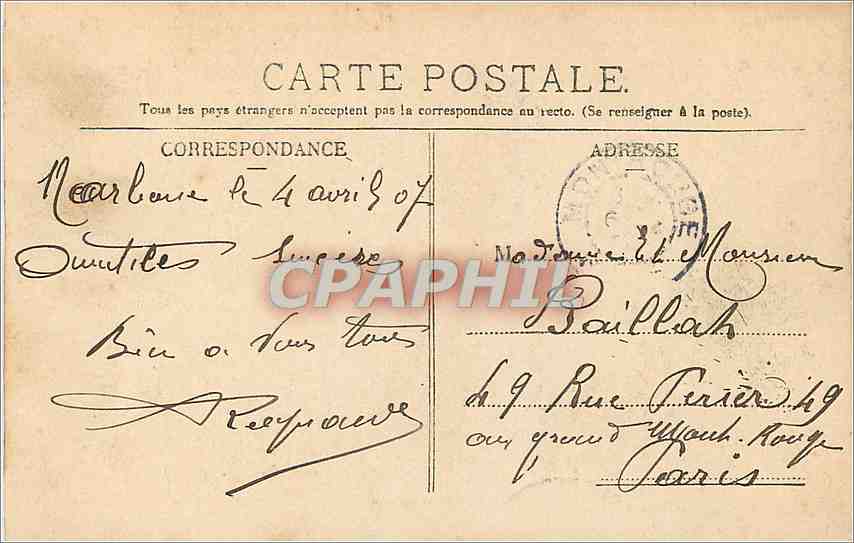 CARTE POSTALE.
Tous les pays étrangers n'acceptent pas la correspondance au recto. (Se renseigner à la poste).
CORRESPONDANCE
Narbone le 4 avril 07
Amities Sincères
Bien a Vous tous
Reynaud
ADRESSE
MONTROUGE
Madame et Monsieur
Baillah
49 Rue Perier 49
au grand Mont-Rouge
Paris
CPAPHIL